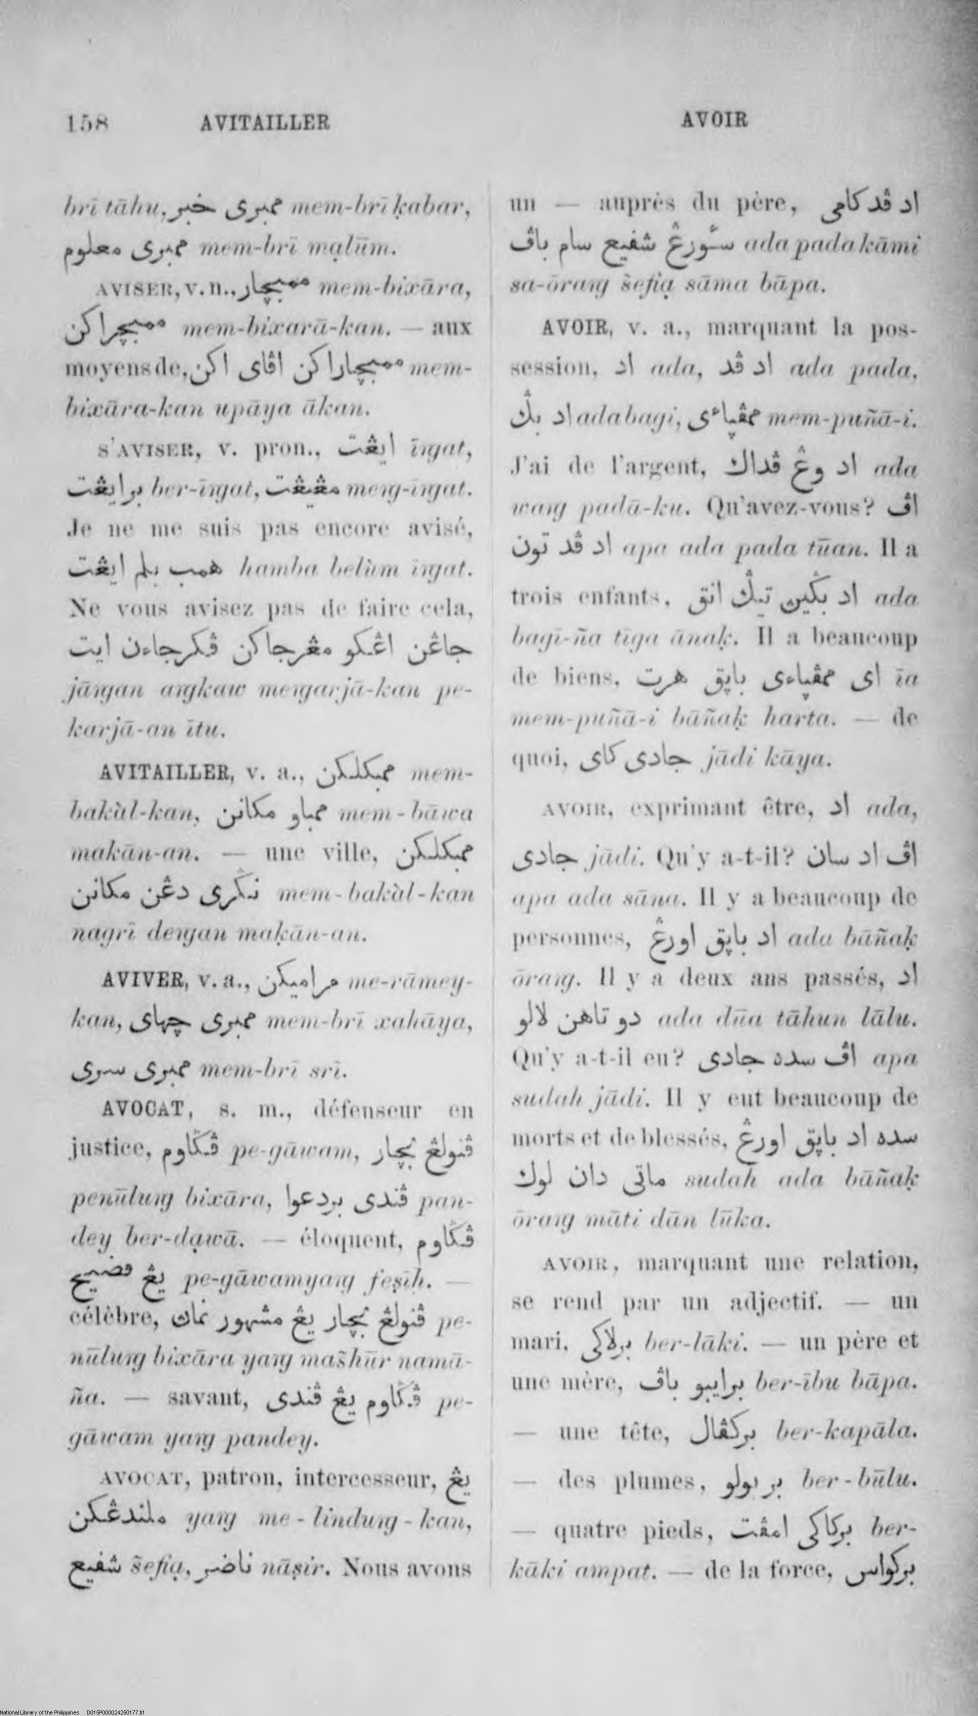 158 AVITAILLER AVOIR
brī tāhu, ممبری خبر mem-brī ḳabar,
ممبری معلوم mem-brī mạlūm.
AVISER, v. n., ممبچار mem-bixāra,
ممبچراکن mem-bixarā-kan. — aux
moyens de, ممبچاراکن اڤای اکن mem-
bixāra-kan upāya ākan.
S'AVISER, v. pron., ایڠت īṅgat,
برایڠت ber-īṅgat, مڠیڠت meṅg-īṅgat.
Je ne me suis pas encore avisé,
همب بلم ایڠت hamba belùm īṅgat.
Ne vous avisez pas de faire cela,
جاڠن اڠکو مڠرجاکن ڤکرجاءن ایت
jāṅgan aṅgkaw meṅgarjā-kan pe-
karjā-an ītu.
AVITAILLER, v. a., ممبکلکن mem-
bakùl-kan, ممباو مکانن mem-bāwa
makān-an. — une ville, ممبکلکن
نݢری دڠن مکانن mem-bakùl-kan
nagrī deṅgan maḳān-an.
AVIVER, v. a., مرامیکن me-rāmey-
kan, ممبری چهای mem-brī xahāya,
ممبری سری mem-brī srī.
AVOCAT, s. m., défenseur en
justice, ڤݢاوم pe-gāwam, ڤنولڠ بچار
penūluṅg bixāra, ڤندی بردعوا pan-
dey ber-dạwā. — éloquent, ڤݢاوم
یڠ فصیح pe-gāwam yaṅg feṣīḥ. —
célèbre, ڤنولڠ بچار یڠ مشهور نماڽ pe-
nūluṅg bixāra yaṅg mašhūr namā-
ña. — savant, ڤݢاوم یڠ ڤندی pe-
gāwam yaṅg pandey.
AVOCAT, patron, intercesseur, یڠ
ملندڠکن yaṅg me-linduṅg-kan,
شفیع šefīạ, ناصر nāṣir. Nous avons
un — auprès du père, اد ڤد کامی
سٔورڠ شفیع سام باڤ ada pada kāmi
sa-ōraṅg šefīạ sāma bāpa.
AVOIR, v. a., marquant la pos-
session, اد ada, اد ڤد ada pada,
اد بݢ ada bagi, ممڤڽاءی mem-puñā-i.
J'ai de l'argent, اد وڠ ڤداک ada
waṅg padā-ku. Qu'avez-vous? اڤ
اد ڤد تون apa ada pada tūan. Il a
trois enfants, اد بݢیڽ تیݢ انق ada
bagī-ña tīga ānaḳ. Il a beaucoup
de biens, ای ممڤڽاءی باڽق هرت īa
mem-puñā-i bāñaḳ harta. — de
quoi, جادی کای jādi kāya.
AVOIR, exprimant être, اد ada,
جادی jādi. Qu'y a-t-il? اڤ اد سان
apa ada sāna. Il y a beaucoup de
personnes, اد باڽق اورڠ ada bāñaḳ
ōraṅg. Il y a deux ans passés, اد
دو تاهن لالو ada dūa tāhun lālu.
Qu'y a-t-il eu? اڤ سده جادی apa
sudah jādi. Il y eut beaucoup de
morts et de blessés, سده اد باڽق اورڠ
ماتی دان لوک sudah ada bāñaḳ
ōraṅg māti dān lūka.
AVOIR, marquant une relation,
se rend par un adjectif. — un
mari, برلاکی ber-lāki. — un père et
une mère, برایبو باڤ ber-ību bāpa.
— une tête, برکڤال ber-kapāla.
— des plumes, بر بولو ber-būlu.
— quatre pieds, برکاکی امڤت ber-
kāki ampat. — de la force, برکواس
National Library of the Philippines